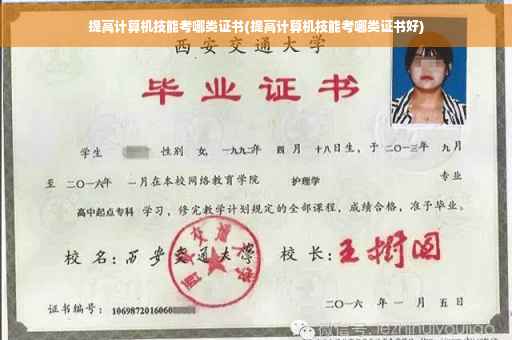 提高计算机技能考哪类证书(提高计算机技能考哪类证书好)
西安交通大学
毕业证书
学生 性别 女, 一九九二年 四月 十八日生, 于二〇一三年 九月
至 二〇一六年 一月在本校网络教育学院 护理学 专业
高中起点专科 学习, 修完教学计划规定的全部课程, 成绩合格, 准予毕业。
校名: 西安交通大学 校长: 王树国
西安交通大学
证书编号: 1069872016060
二〇一六年 一月 五日
微信号: jezhihuiyoujiao